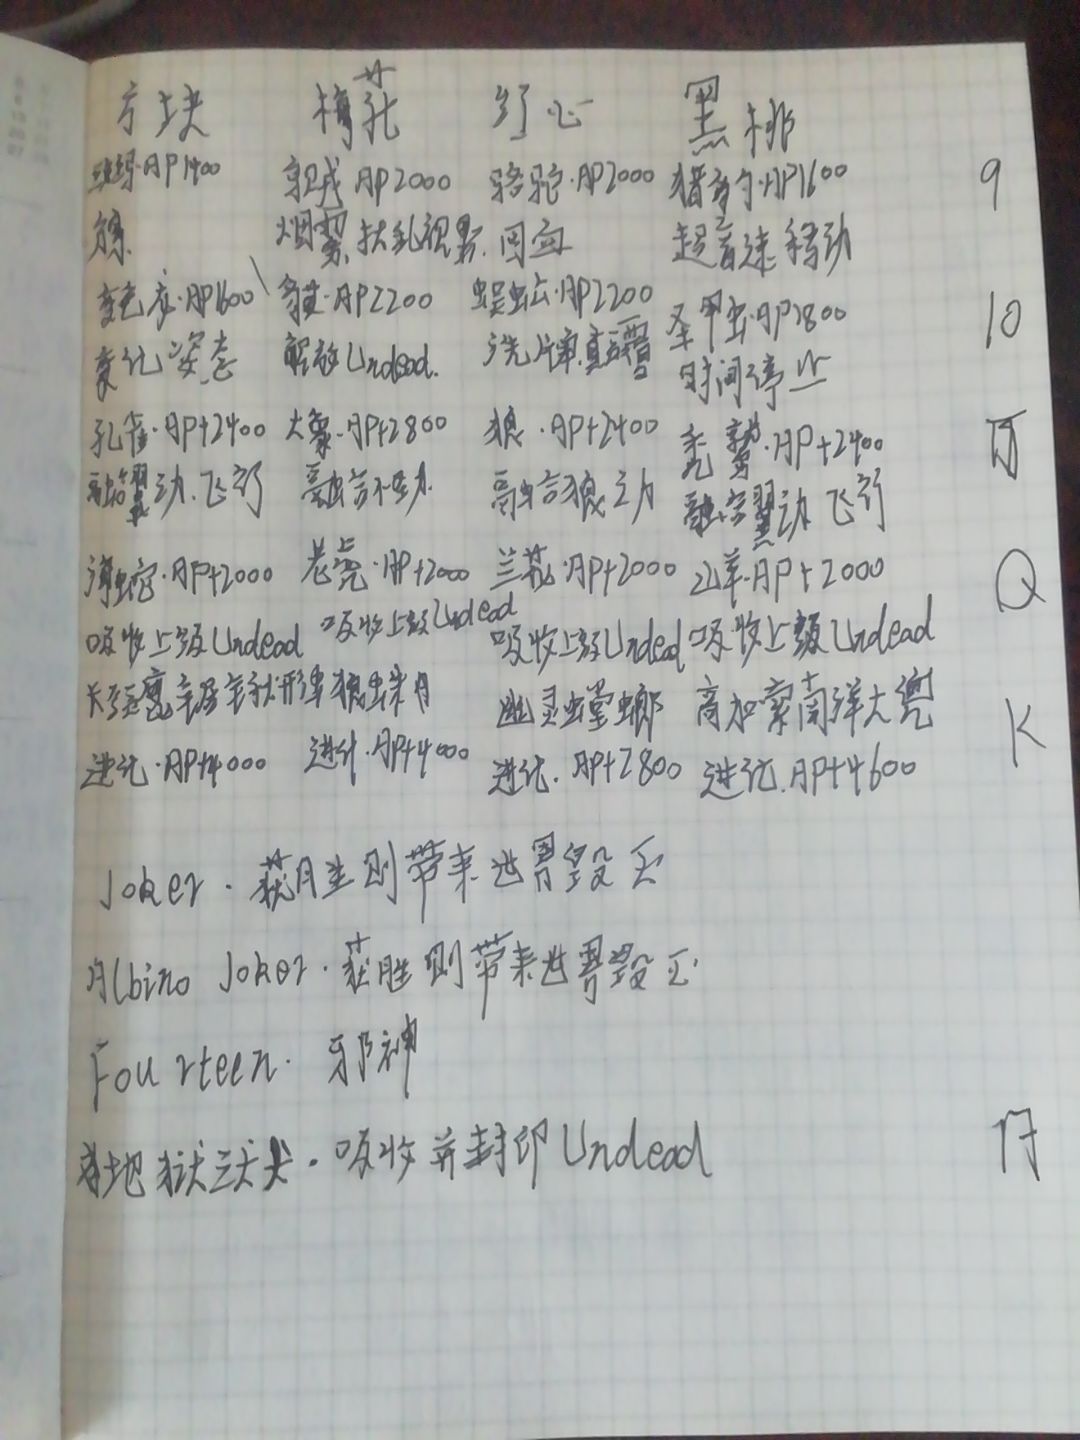 方块 梅花 红心 黑桃
AP1400 AP2000 骆驼·AP2000 猎豹·AP1600 9
烟雾,扰乱视野 回血 超音速移动
变色龙·AP1600 貘·AP2200 蜈蚣·AP2200 圣甲虫·AP1800 10
变化姿态 解放Undead. 洗牌 时间停止
孔雀·AP+2400 大象·AP+2800 狼·AP+2400 秃鹫·AP+2400 J
融合翼动.飞行 融合不动. 融合狼动 融合翼动 飞行
蛇·AP+2000 老虎·AP+2000 兰花·AP+2000 山羊·AP+2000 Q
吸收上级Undead 吸收上级Undead 吸收上级Undead 吸收上级Undead
狼蛛 幽灵螳螂 高加索南洋大兜 K
进化·AP+4000 进化·AP+4000 进化.AP+2800 进化.AP+4600
Joker·获胜则带来世界毁灭
Albino Joker·获胜则带来世界毁灭
Fourteen·邪神
地狱三头犬·吸收并封印Undead A